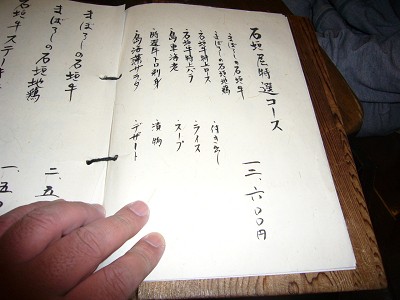 石垣屋特選コース
一三、六〇〇円
・まぼろしの石垣牛
・まぼろしの石垣地鶏
・石垣牛特上ロース
・石垣牛特上バラ
・島車海老
・石垣牛トロ刺身
・島海藻サラダ
・付き出し
・ライス
・スープ
・漬物
・デザート
まぼろしの石垣牛
まぼろしの石垣地鶏
二、五
石垣牛ステーキ
一、五〇